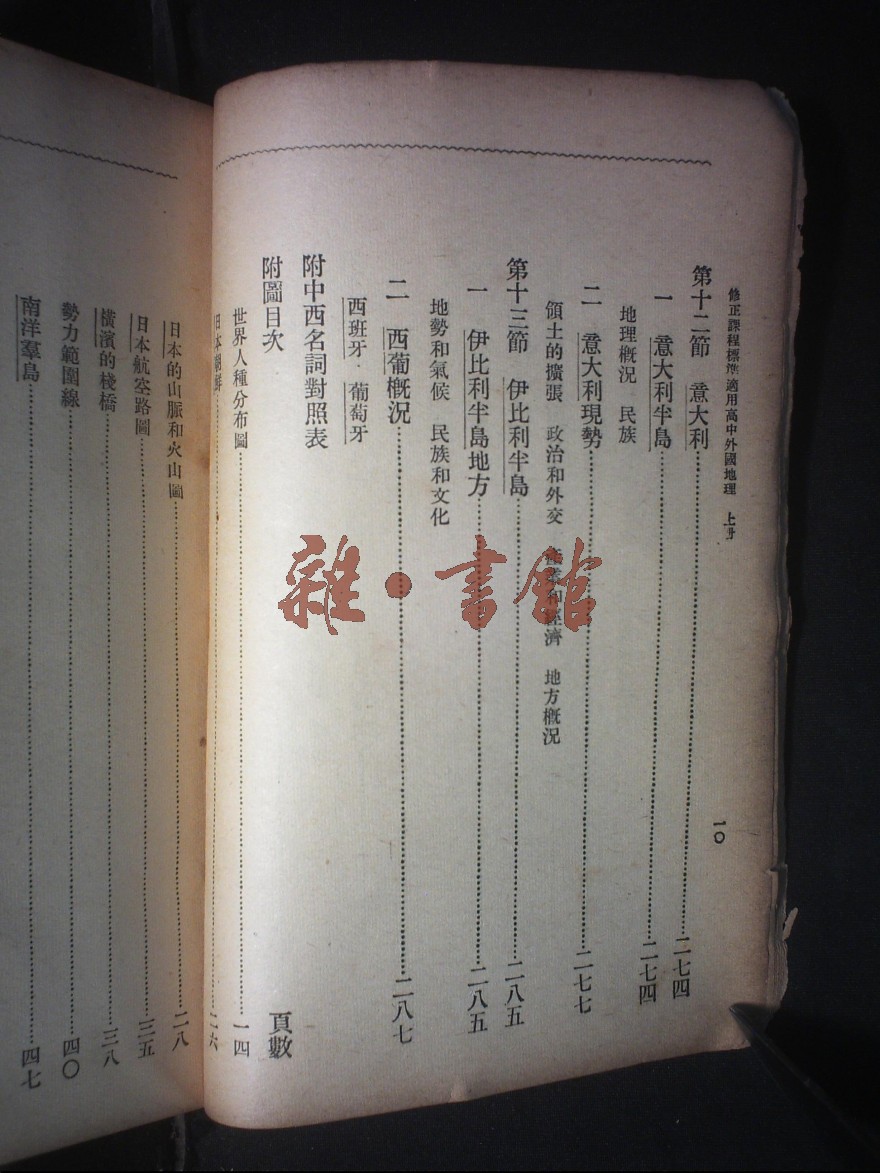 修正課程標準適用高中外國地理 上册 一〇
第十二節 意大利……二七四
一 意大利半島……二七四
地理概況 民族
二 意大利現勢……二七七
領土的擴張 政治和外交 和經濟 地方概況
第十三節 伊比利半島……二八五
一 伊比利半島地方……二八五
地勢和氣候 民族和文化
二 西葡概況……二八七
西班牙·葡萄牙
附中西名詞對照表
附圖目次 頁數
世界人種分布圖……一四
日本朝鮮……二六
日本的山脈和火山圖……二八
日本航空路圖……三五
橫濱的棧橋……三八
勢力範圍線……四〇
南洋羣島……四七
雜·書館